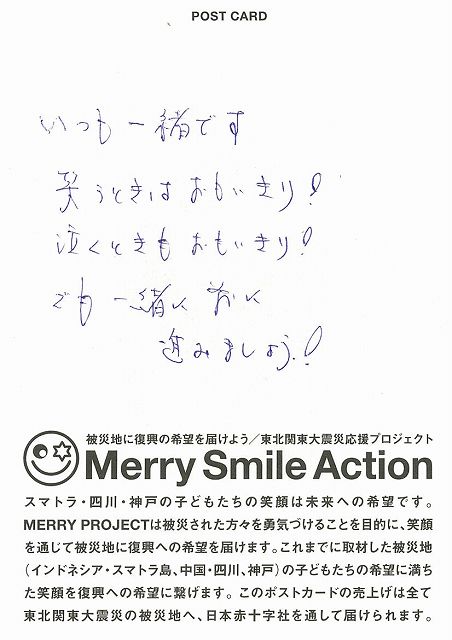 POST CARD
いつも一緒です
笑うときはおもいきり!
泣くときもおもいきり!
でも一緒に前に
進みましょう!
被災地に復興の希望を届けよう/東北関東大震災応援プロジェクト
Merry Smile Action
スマトラ・四川・神戸の子どもたちの笑顔は未来への希望です。
MERRY PROJECTは被災された方々を勇気づけることを目的に、笑顔
を通じて被災地に復興への希望を届けます。これまでに取材した被災地
(インドネシア・スマトラ島、中国・四川、神戸)の子どもたちの希望に満ち
た笑顔を復興への希望に繋げます。このポストカードの売上げは全て
東北関東大震災の被災地へ、日本赤十字社を通して届けられます。